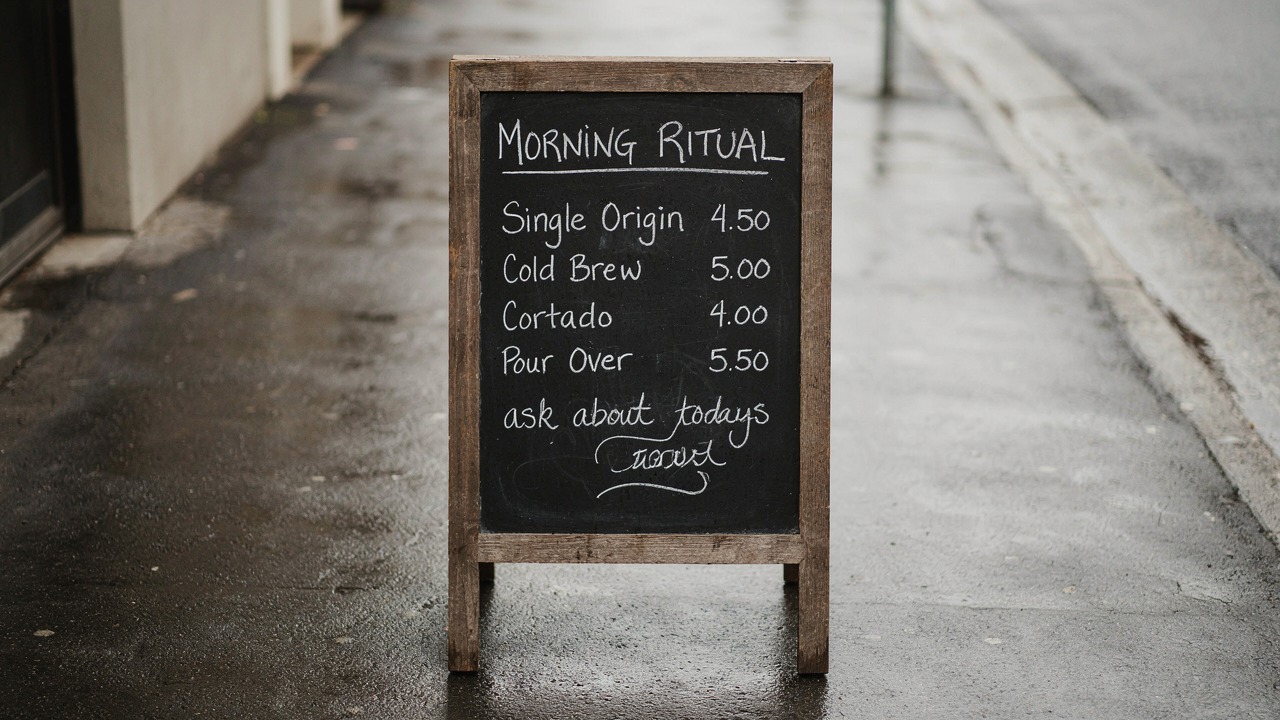 MORNING RITUAL
Single Origin 4.50
Cold Brew 5.00
Cortado 4.00
Pour Over 5.50
ask about todays